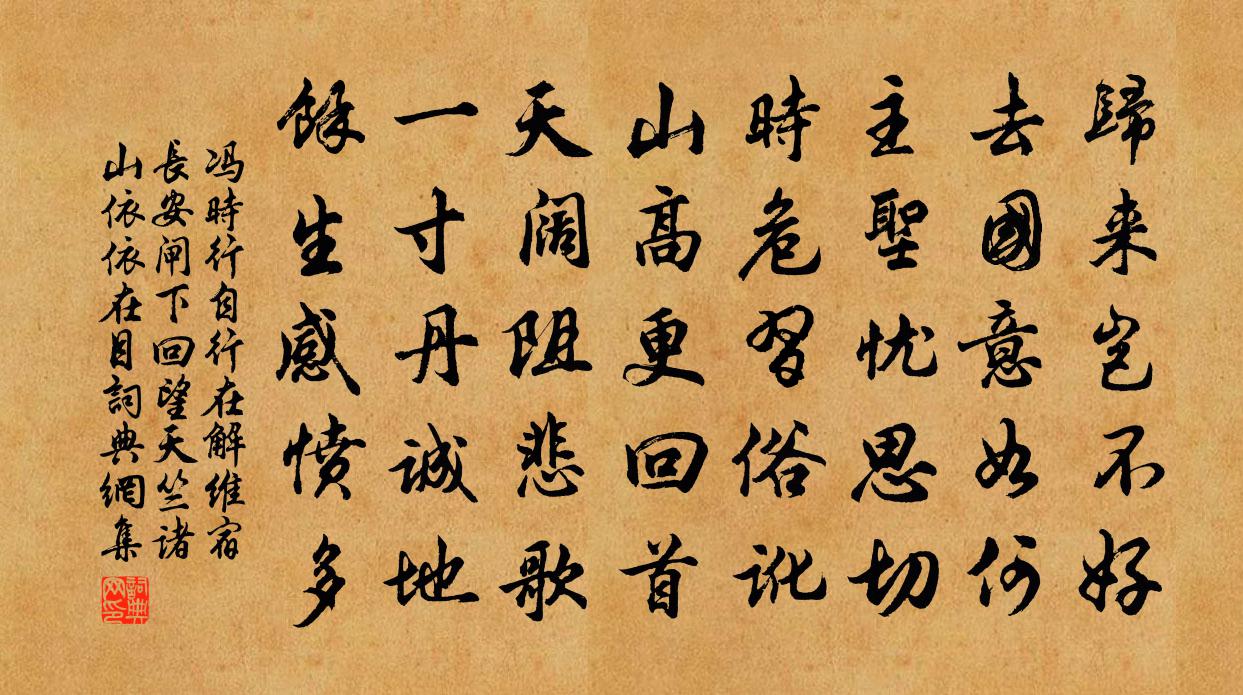 歸来豈不好
去國意如何
主聖忧思切
時危習俗訛
山高更回首
天阔阻悲歌
一寸丹诚地
餘生感愤多
冯時行自行在解維宿
長安闸下回望天竺诸
山依依在目詞典網集
詞典网印